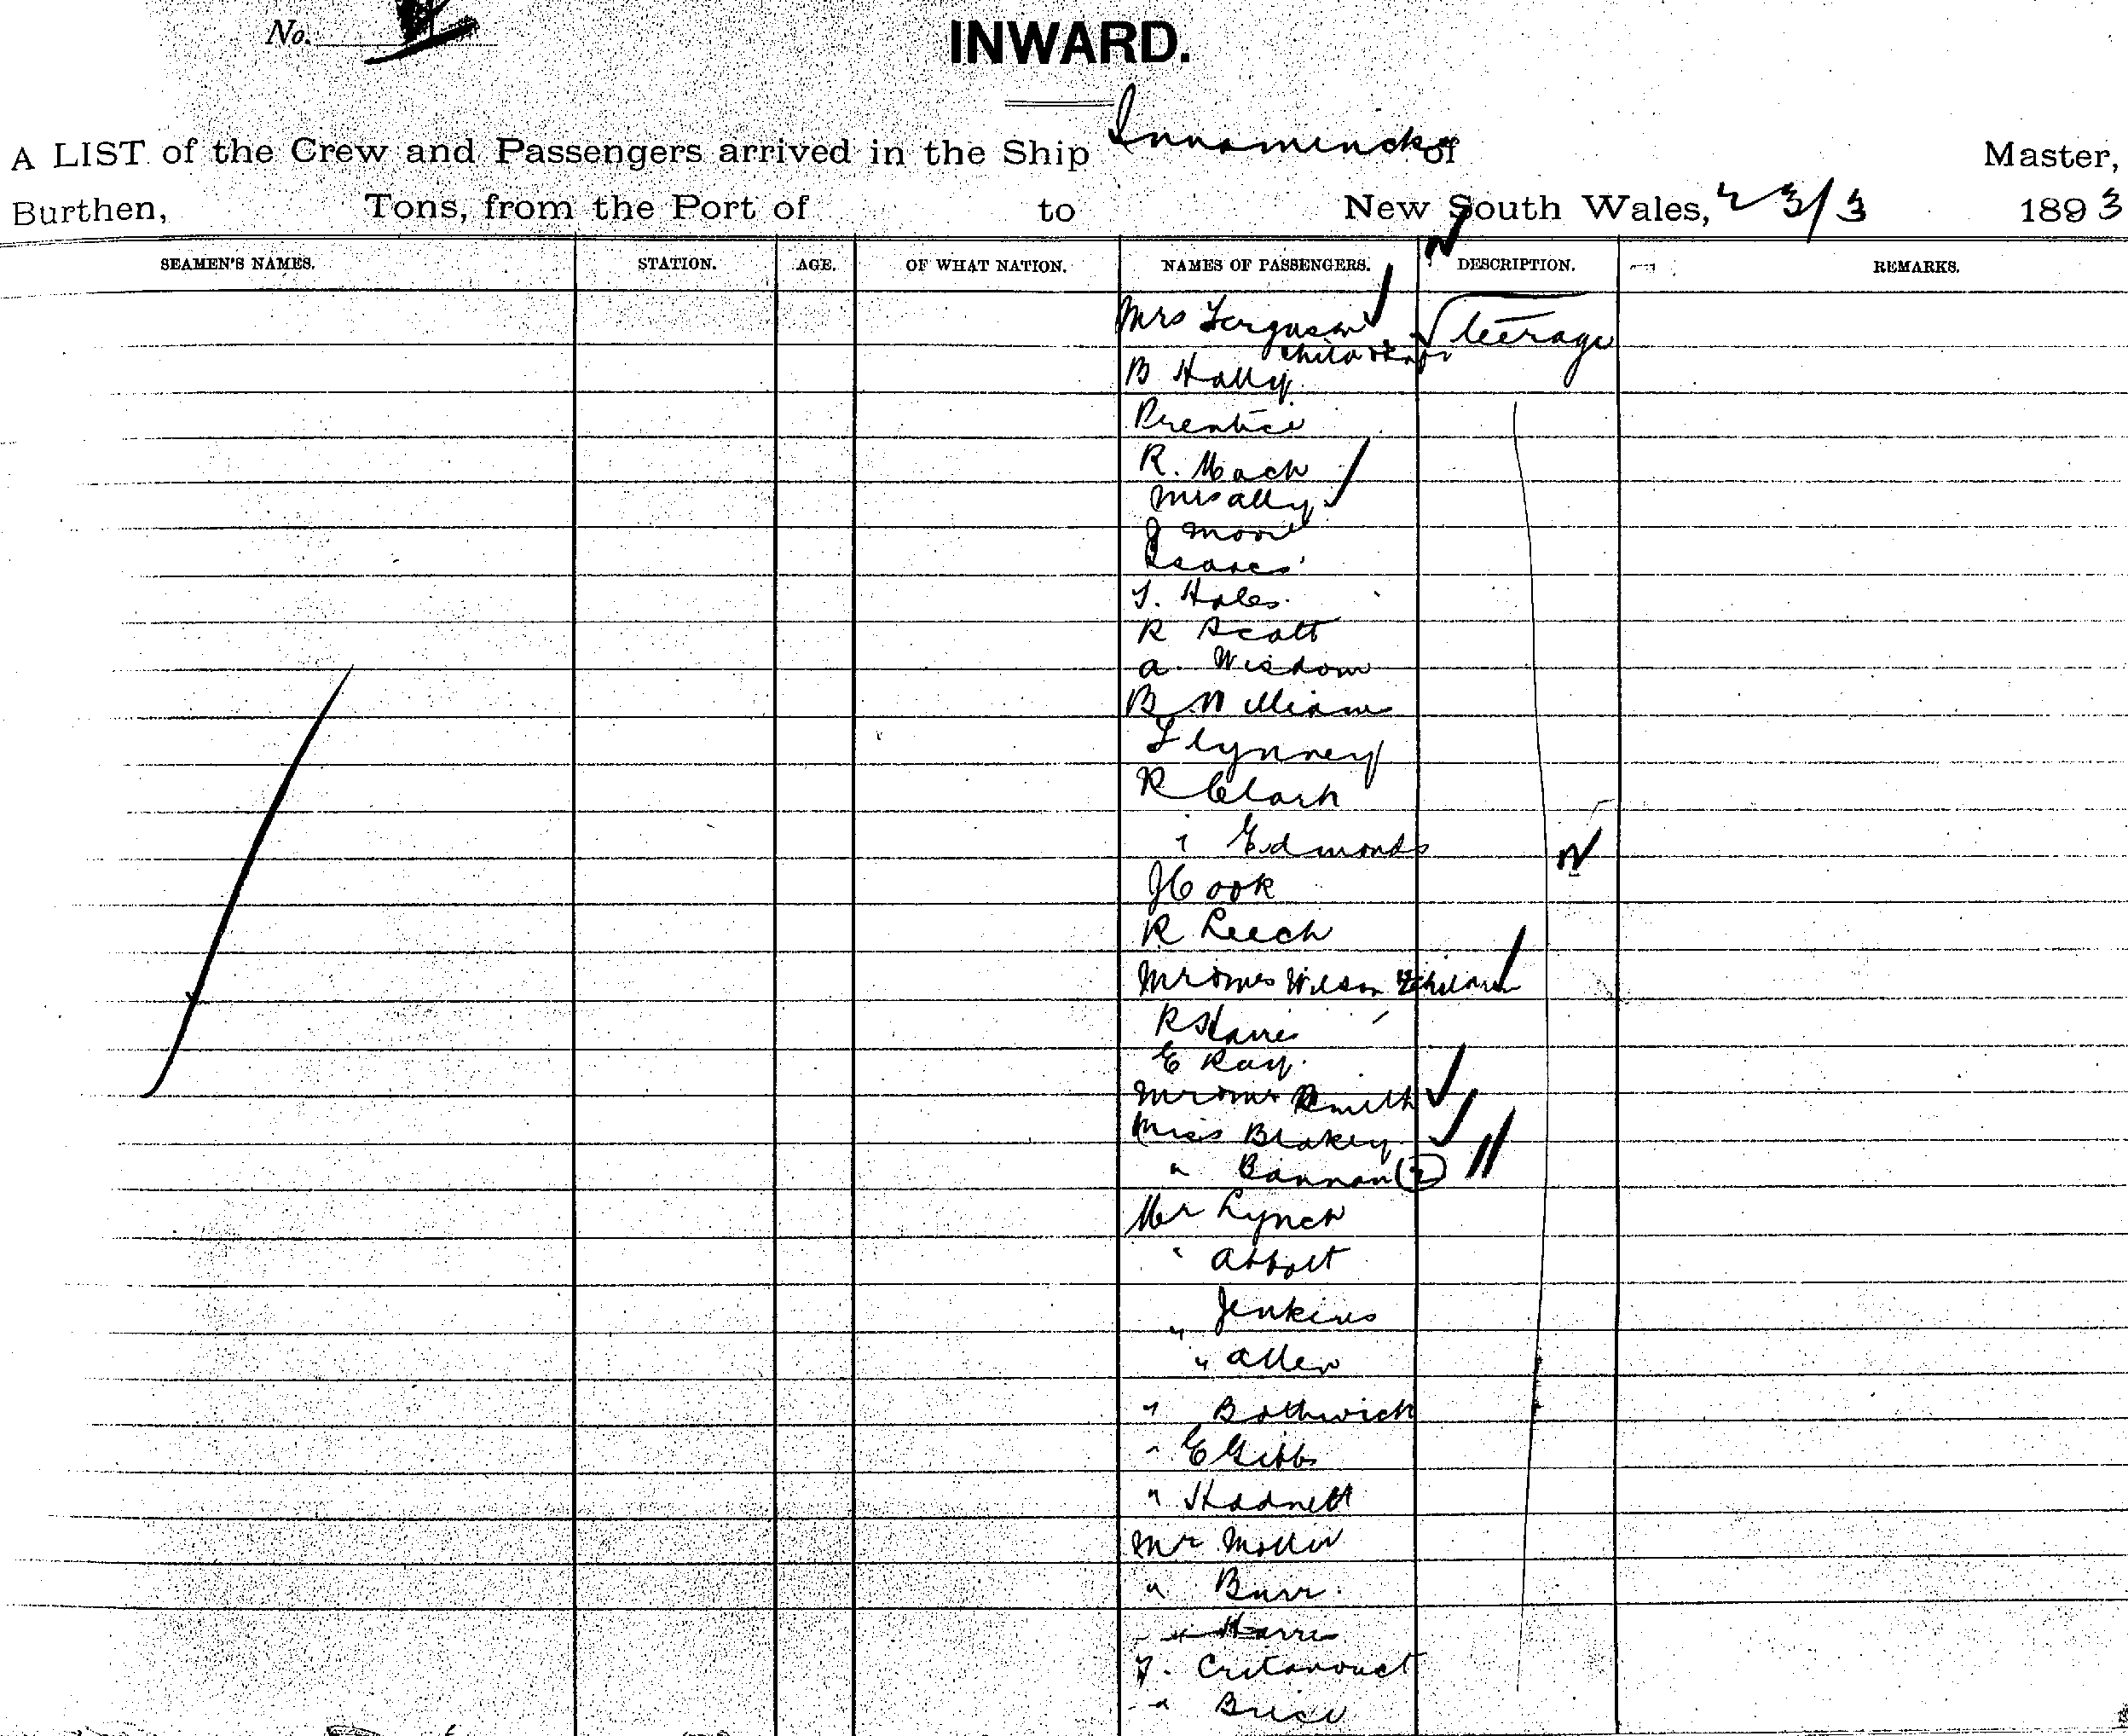 No.
INWARD.
A LIST of the Crew and Passengers arrived in the Ship Innamincka of Master,
Burthen, Tons, from the Port of to New South Wales, 23/3 1893
SEAMEN'S NAMES. STATION. AGE. OF WHAT NATION. NAMES OF PASSENGERS. DESCRIPTION. REMARKS.
Mrs Ferguson Steerage
child
B Hally
Prentice
R. Mach
Mrs Ally
J Moore
Isaacs
T. Hales
R Scott
A. Wisdom
B Williams
Flynney
R Clark
" Edmonds
J Cook
R Leech
Mr & Mrs Wilson children
R Harris
E Ray
Mr & Mrs Smith
Miss Blakey
" Bannan (2)
Mr Lynch
" Abbott
" Jenkins
" Allen
" Bothwick
" E Gibbs
" Hadnett
Mr Moller
" Burr
" Harris
" Brice